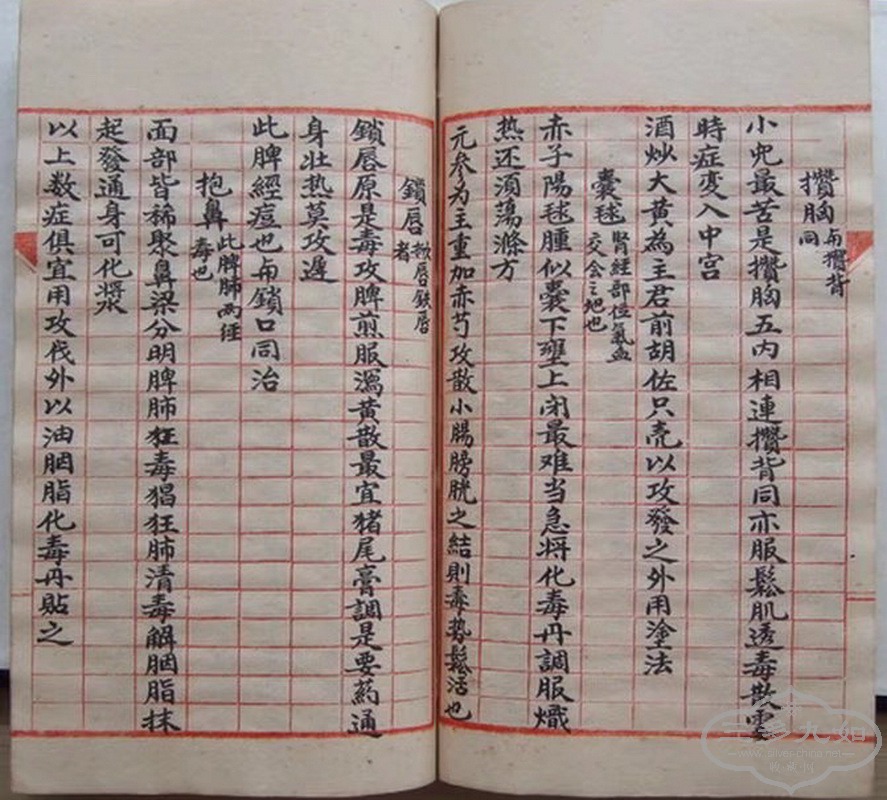 攢胸 与攢背同
小児最苦是攢胸五内相連攢背同亦服鬆肌透毒散霎
時症変入中宫
酒炒大黄為主君前胡佐只壳以攻發之外用塗法
囊毬 腎經部位氣血交会之地也
赤子陽毬腫似囊下壅上闭最难当急将化毒丹調服熾
热还須蕩滌方
元参为主重加赤芍攻散小腸膀胱之結則毒势鬆活也
鎖唇 掀唇鉄唇者
鎖唇原是毒攻脾煎服瀉黄散最宜猪尾膏調是要药通
身壮热莫攻遅
此脾經痘也与鎖口同治
抱鼻 此脾肺两經毒也
面部皆稀聚鼻梁分明脾肺狂毒猖狂肺清毒解胭脂抹
起發通身可化漿
以上数症俱宜用攻伐外以油胭脂化毒丹貼之